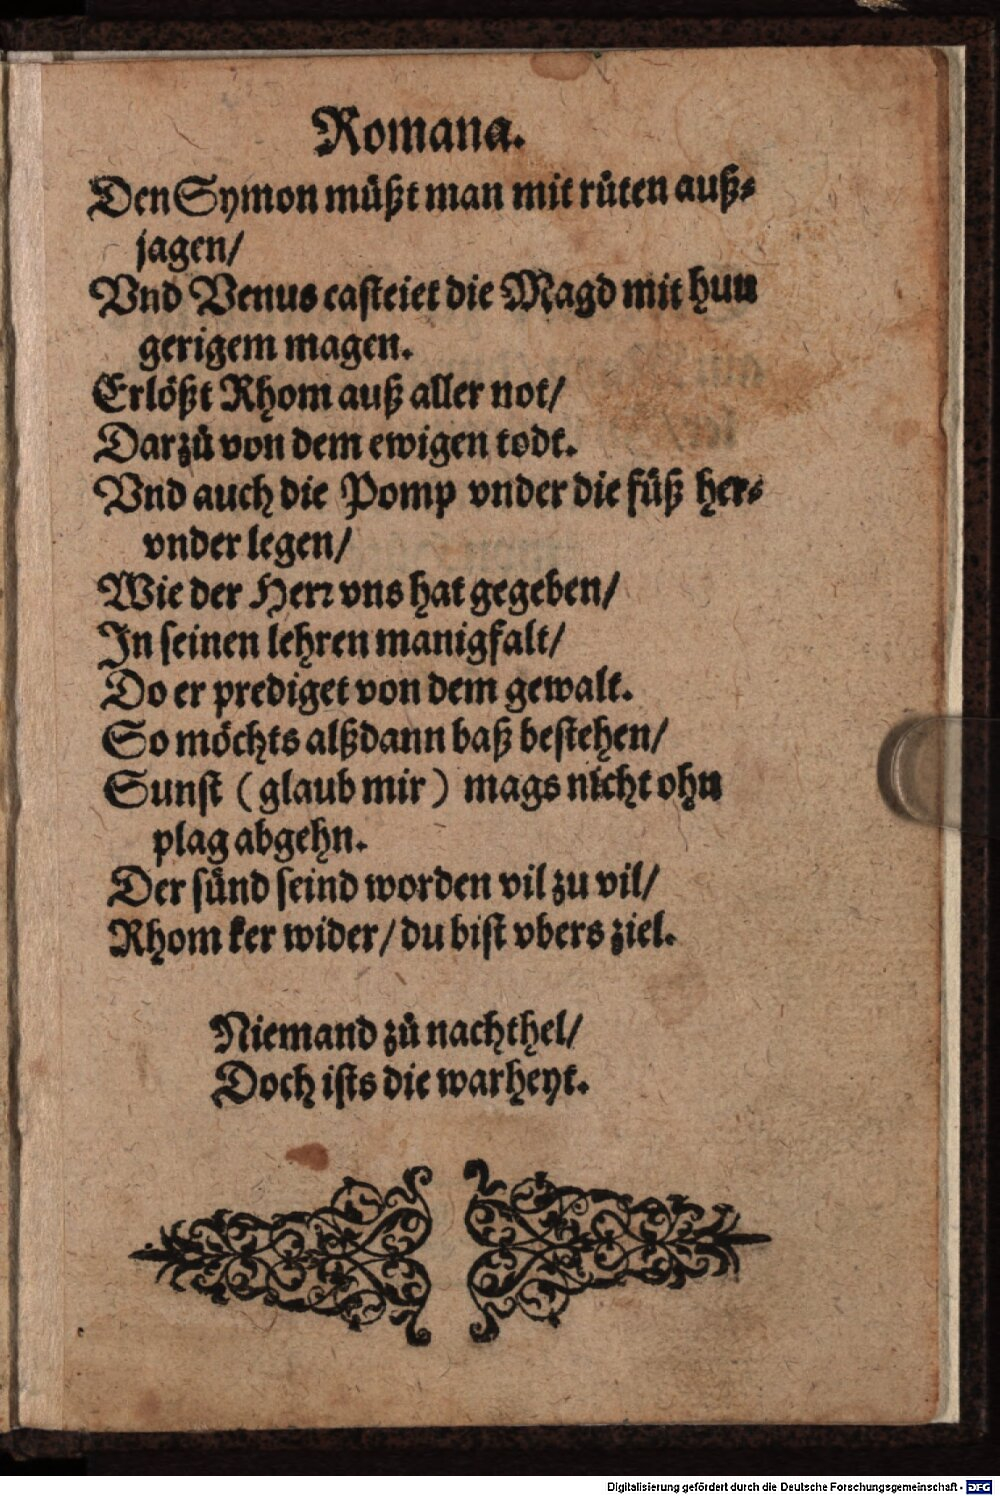 Romana.
Den Symon müßt man mit růten auß⸗
jagen/
Vnd Venus casteiet die Magd mit hun
gerigem magen.
Erlößt Rhom auß aller not/
Darzů von dem ewigen todt.
Vnd auch die Pomp vnder die füß her⸗
vnder legen/
Wie der Herr vns hat gegeben/
In seinen lehren manigfalt/
Do er prediget von dem gewalt.
So möchts alßdann baß bestehen/
Sunst (glaub mir) mags nicht ohn
plag abgehn.
Der sünd seind worden vil zu vil/
Rhom ker wider/ du bist vbers ziel.
Niemand zů nachthel/
Doch ists die warheyt.
Digitalisierung gefördert durch die Deutsche Forschungsgemeinschaft - DFG